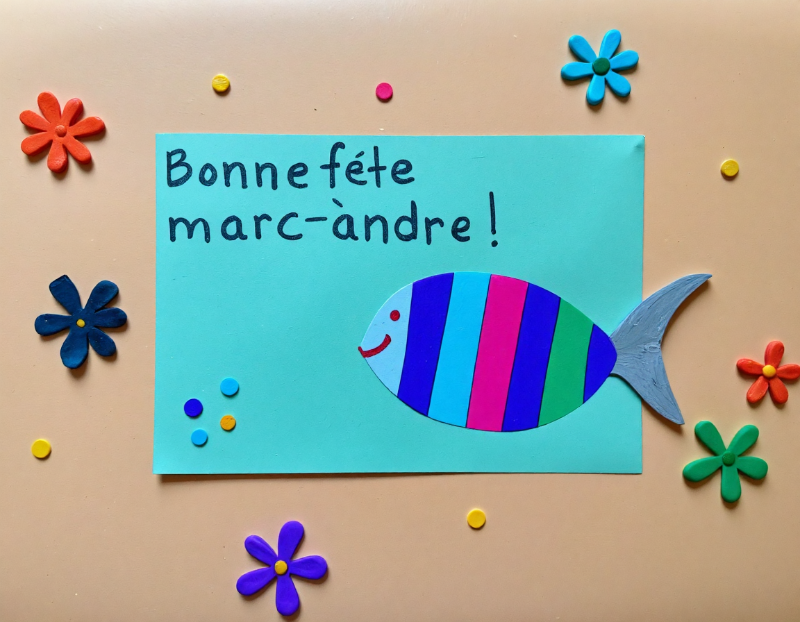 Bonne féte
marc-àndre !